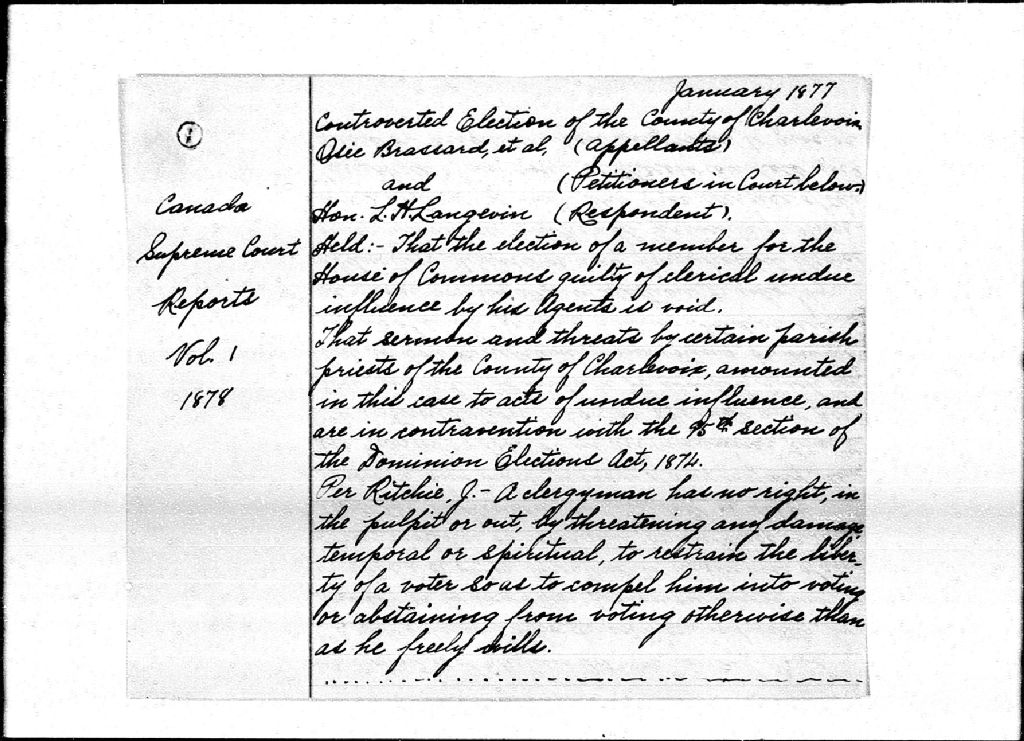 ①
Canada
Supreme Court
Reports
Vol. 1
1878
January 1877
Controverted Election of the County of Charlevoix
Osie Brassard, et al, (Appellants)
and (Petitioners in Court below)
Hon. L. H. Langevin (Respondent).
Held:- That the election of a member for the
House of Commons guilty of clerical undue
influence by his Agents is void.
That sermon and threats by certain parish
priests of the County of Charlevoix, amounted
in this case to acts of undue influence, and
are in contravention with the 95th section of
the Dominion Elections Act, 1874.
Per Ritchie, J. - A clergyman has no right, in
the pulpit or out, by threatening any damage,
temporal or spiritual, to restrain the liber-
ty of a voter so as to compel him into voting
or abstaining from voting otherwise than
as he freely wills.